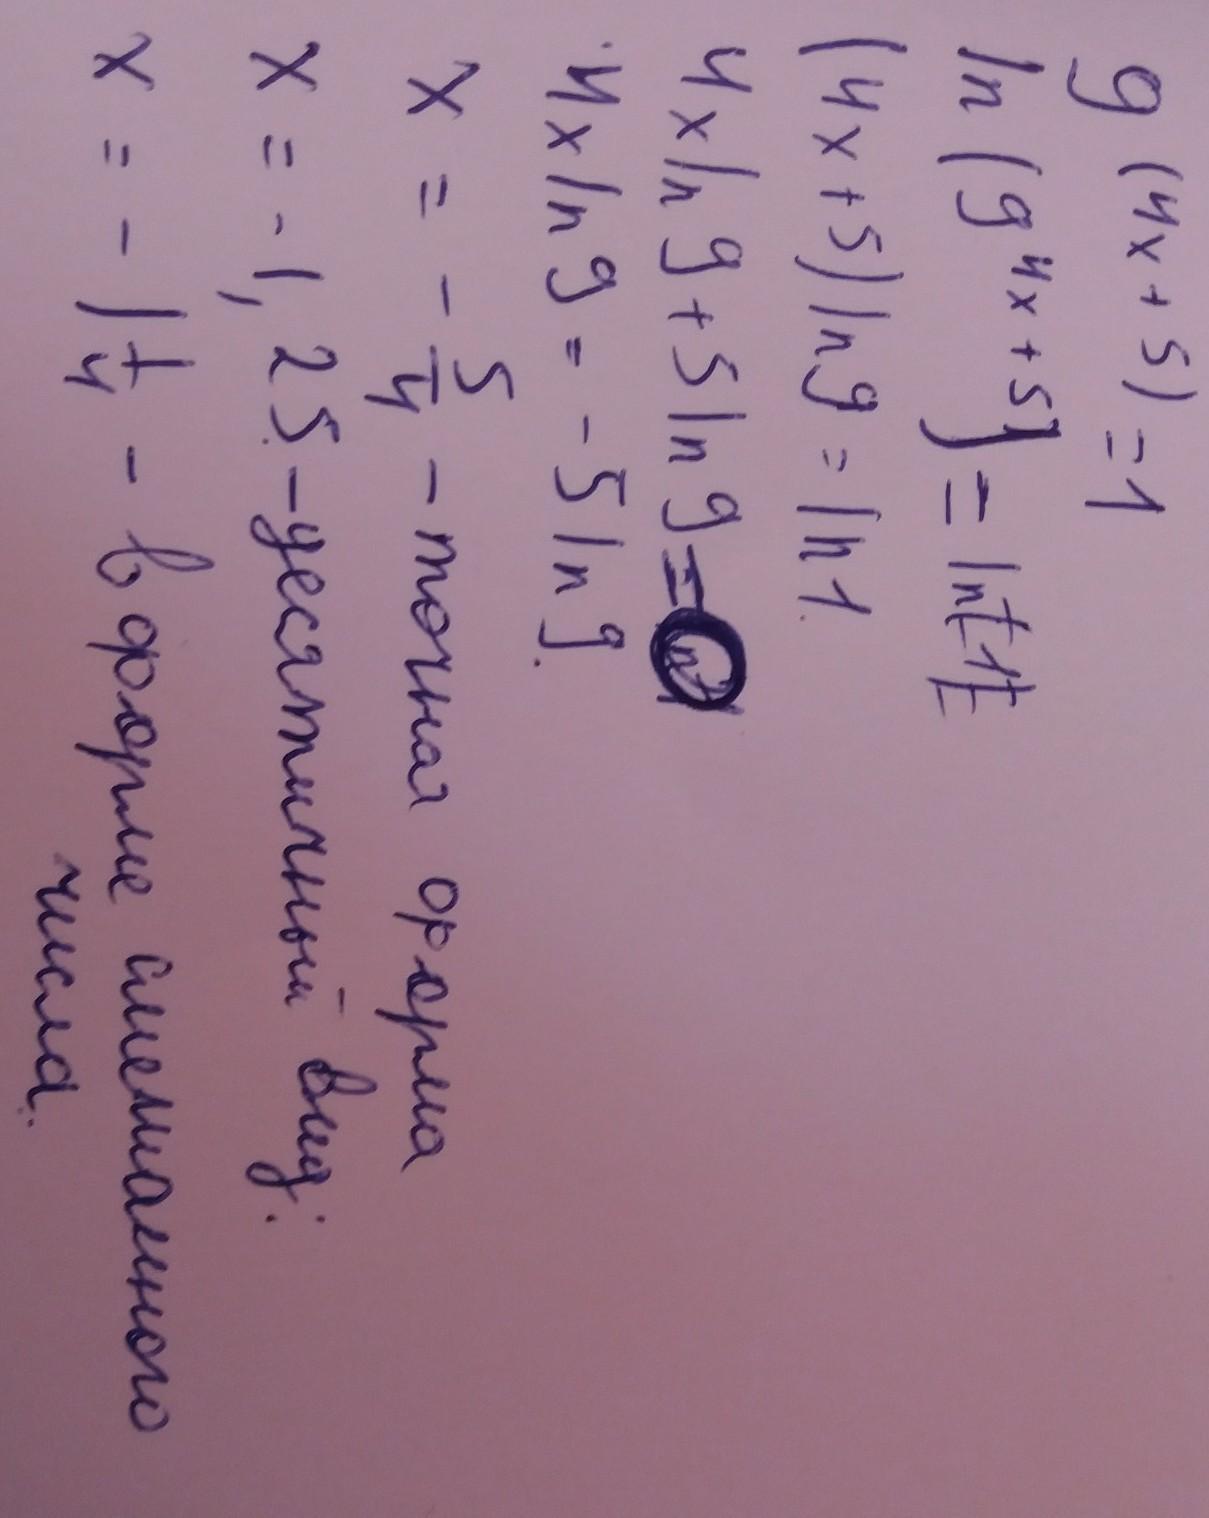 9 (4x + 5) = 1
ln (9^4x + 5) = ln 1
(4x + 5) ln 9 = ln 1.
4x ln 9 + 5 ln 9 = 0
4x ln 9 = - 5 ln 9.
x = - 5/4 - точная форма
x = - 1,25 - десятичный вид.
x = - 1 1/4 - в форме смешанного
числа.